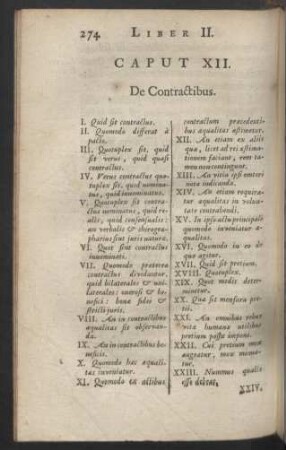 274 LIBER II.
CAPUT XII.
De Contractibus.
I. Quid sit contractus.
II. Quomodo differat à
pacto.
III. Quotuplex sit, quid
sit verus, quid quasi
contractus.
IV. Verus contractus quo-
tuplex sit, quid nomina-
tus, quid innominatus.
V. Quotuplex sit contra-
ctus nominatus, quid re-
alis, quid consensualis:
an verbalis & chirogra-
pharius sint juris natura.
VI. Quot sint contractus
innominati.
VII. Quomodo praeterea
contractus dividatur,
quid bilaterales & uni-
laterales: onerosi & be-
nefici: bonae fidei &
stricti juris.
VIII. An in contractibus
aequalitas sit observan-
da.
IX. An in contractibus be-
neficis.
X. Quomodo haec aequali-
tas inveniatur.
XI. Quomodo ex actibus
contractum praecedenti-
bus aequalitas aestimetur.
XII. An etiam ex aliis
qua, licet ad rei aesti-
mationem faciant, rem ta-
men non contingunt.
XIII. An vitia ipsi emtori
sint indicanda.
XIV. An etiam requira-
tur aequalitas in volun-
tate contrahendi.
XV. In ipso actu principali
quomodo inveniatur ae-
qualitas.
XVI. Quomodo in eo de
quo agitur.
XVII. Quid sit pretium.
XVIII. Quotuplex.
XIX. Quo modis deter-
minetur.
XX. Quae sit mensura pre-
tii.
XXI. An omnibus rebus
vita humana utilibus
pretium possit imponi.
XXII. Cur pretium modo
augeatur, modo minua-
tur.
XXIII. Nummus qualis
esse debeat.
XXIV.